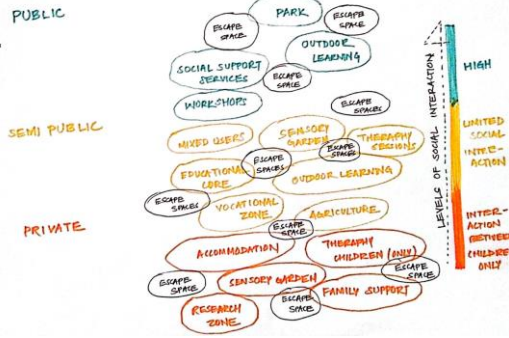 PUBLIC
PARK
ESCAPE
SPACE
ESCAPE
SPACE
OUTDOOR
LEARNING
SOCIAL SUPPORT
SERVICES
ESCAPE
SPACE
WORKSHOPS
ESCAPE
SPACES
SEMI PUBLIC
MIXED USERS
SENSORY
GARDEN
THERAPHY
SESSIONS
ESCAPE
SPACES
EDUCATIONAL
CORE
ESCAPE
SPACES
OUTDOOR LEARNING
ESCAPE
SPACES
VOCATIONAL
ZONE
AGRICULTURE
PRIVATE
ESCAPE
SPACE
ACCOMMODATION
THERAPHY
CHILDREN (ONLY)
ESCAPE
SPACE
SENSORY GARDEN
ESCAPE
SPACE
FAMILY SUPPORT
ESCAPE
SPACE
RESEARCH
ZONE
LEVELS OF SOCIAL INTERACTION
HIGH
LIMITED
SOCIAL
INTER-
ACTION
INTER-
ACTION
BETWEEN
CHILDREN
ONLY